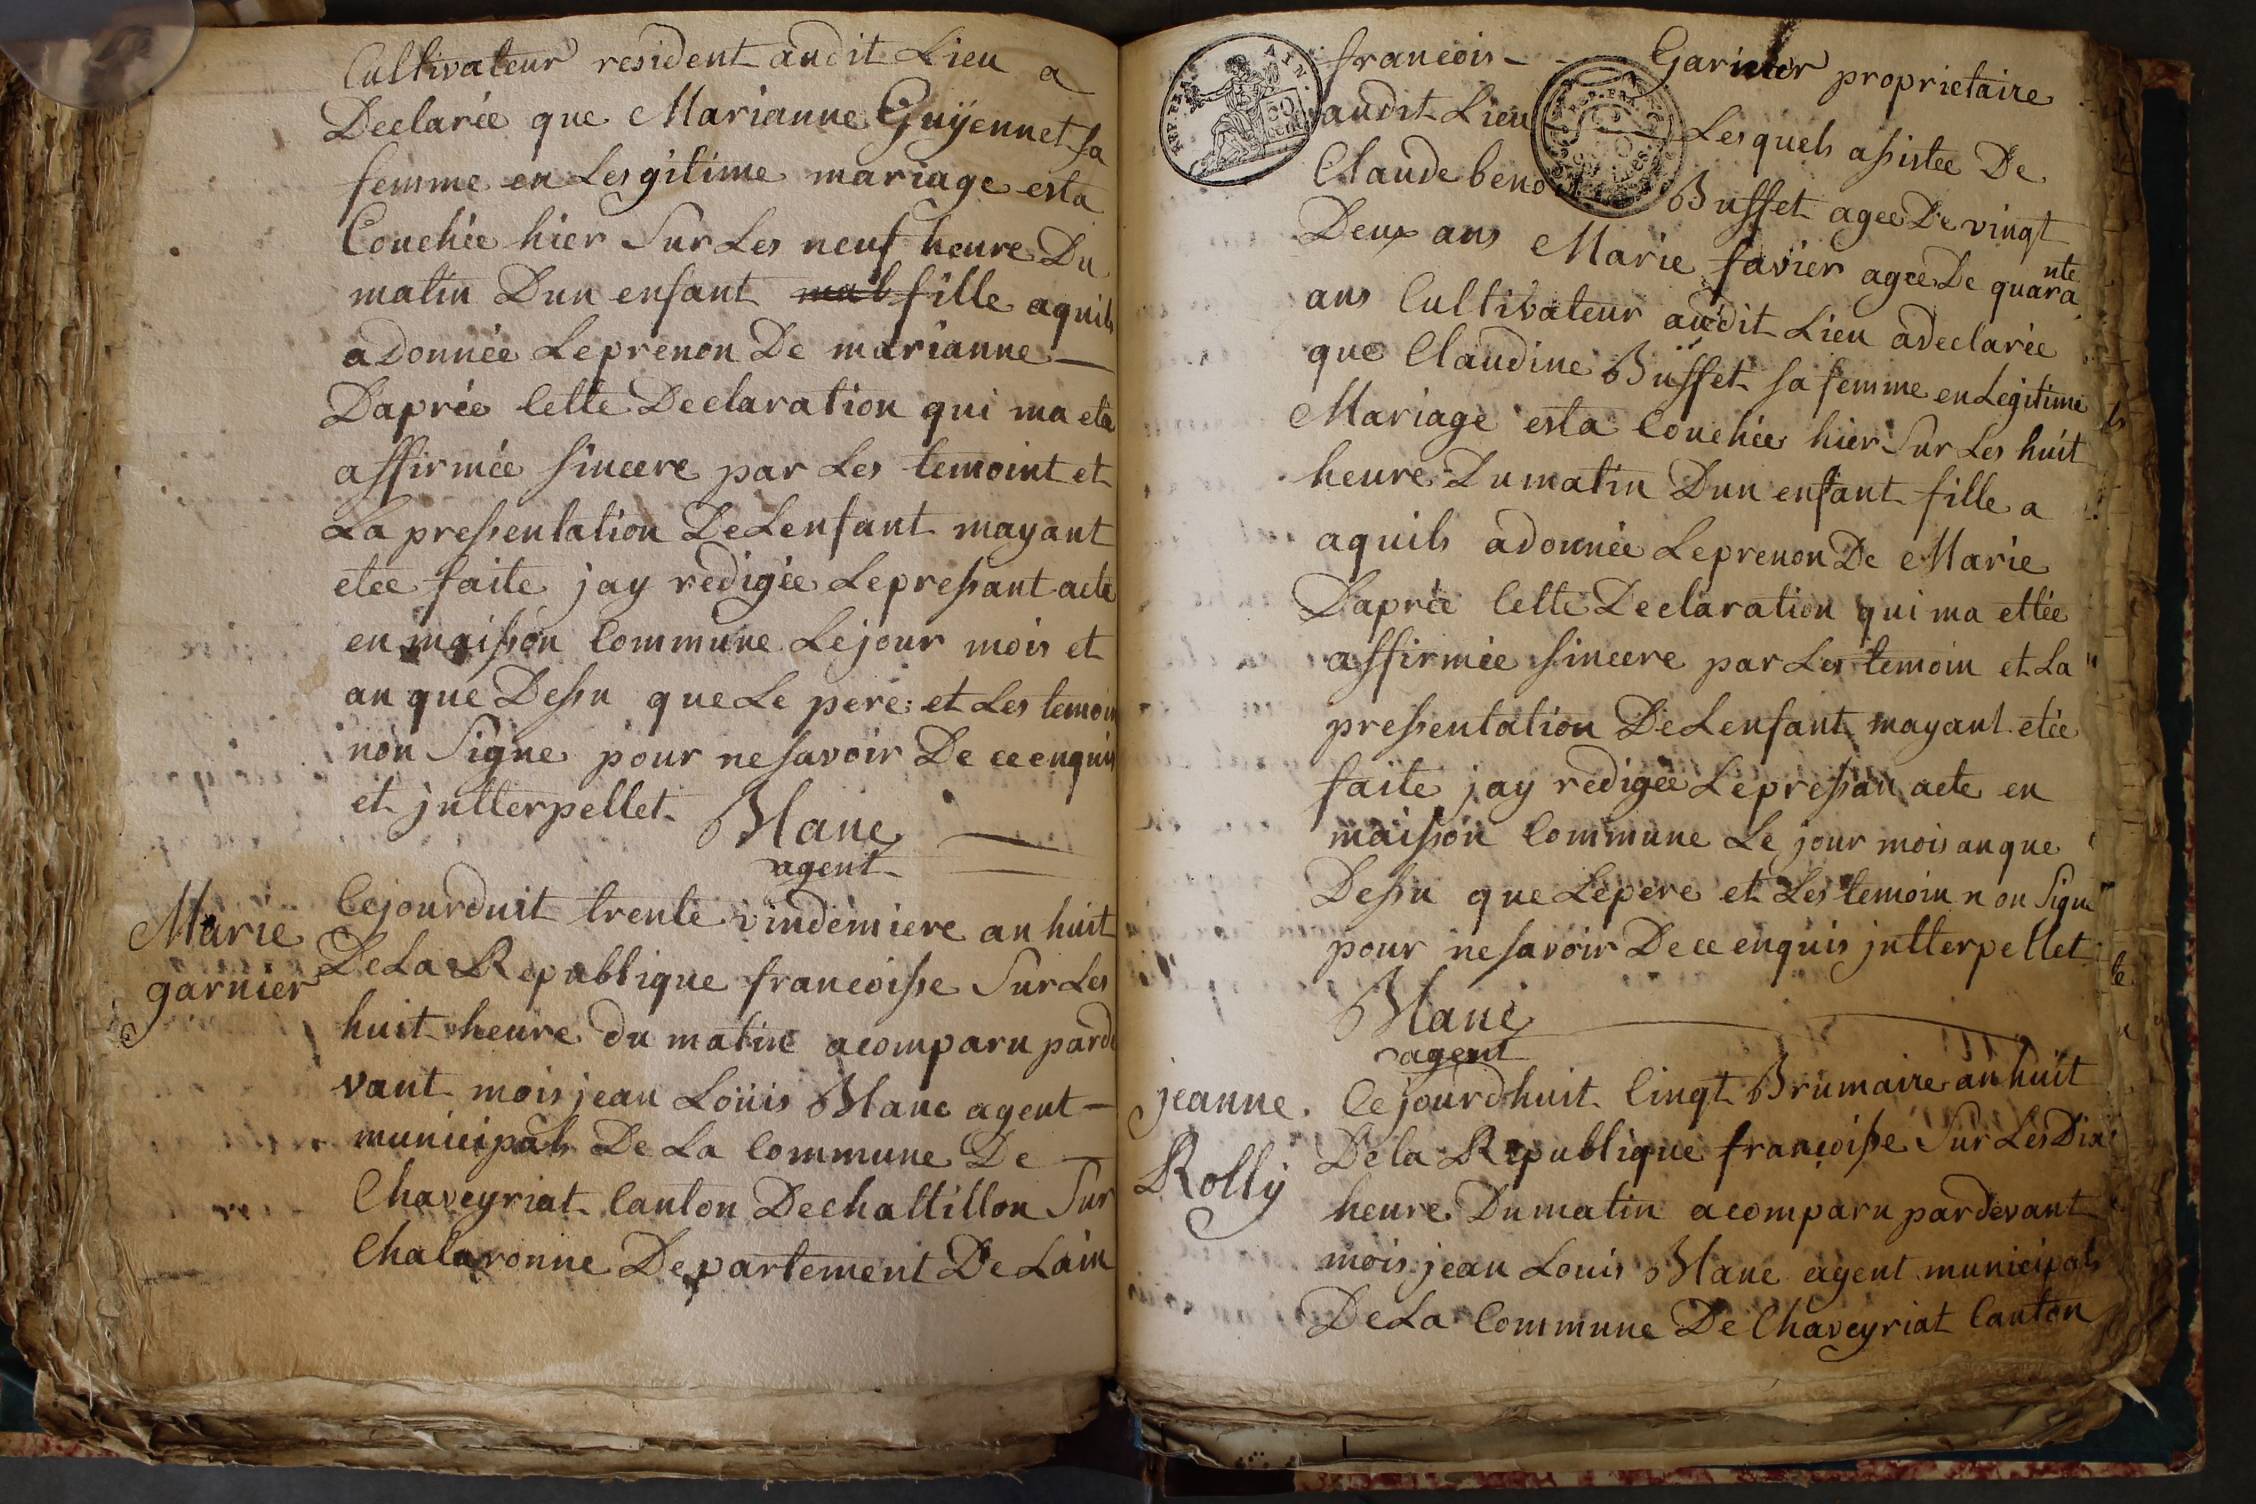 Cultivateur resident audit Lieu a
Declarée que Marianne Guÿennet sa
femme en Lesgitime mariage esta
Couchée hier Sur Les neuf heure Du
matin Dun enfant mal fille aquils
adonnée Leprenon De marianne —
Daprée Cette Declaration qui ma etée
affirmée sincere par Les temoint et
La pressentation DeLenfant mayant
etee faite jay redigée Lepressant acte
en maisson Commune Lejour mois et
an que Dessu que Le pere et Les temoin
non Signe pour nesavoir De ce enquis
et jntterpellet Blanc
agent
Marie
garnier
Cejourduit trente vindemiere an huit
DeLa Republique francoisse Sur Les
huit heure du matin acomparu parde
vant mois jean Loüis Blanc agent —
municipals De La Commune De —
Chaveyriat Canton Dechattillon Sur
Chalaronne Departement De Lain
REP. FRA. AYN.
50 cent
francois - Garnier proprietaire
audit Lieu Lesquels assistee De
Claude benoi Buffet agee De vingt
Deux ans Marie favier agee De quarante
ans Cultivateur audit Lieu adeclarée
que Claudine Buffet sa femme en Legitime
Mariage esta Couchée hier Sur Les huit
heure Dumatin Dun enfant fille a
aquils adonnée Leprenon De Marie
Daprée Cette Declaration qui ma ettée
affirmée sincere par Les temoin et La
pressentation DeLenfant mayant etée
faite jay redigée Lepressan acte en
maisson Commune Le jour mois an que
Dessu que Lepere et Les temoin non Signe
pour nesavoir De ce enquis jntterpellet
Blanc
agent
jeanne
Rollÿ
Cejourdhuit Cingt Brumaire an huit
De la Republique françoisse Sur Les Dix
heure Dumatin acomparu pardevant
mois jean Louis Blanc agent municipals
DeLa Commune De Chaveyriat Canton